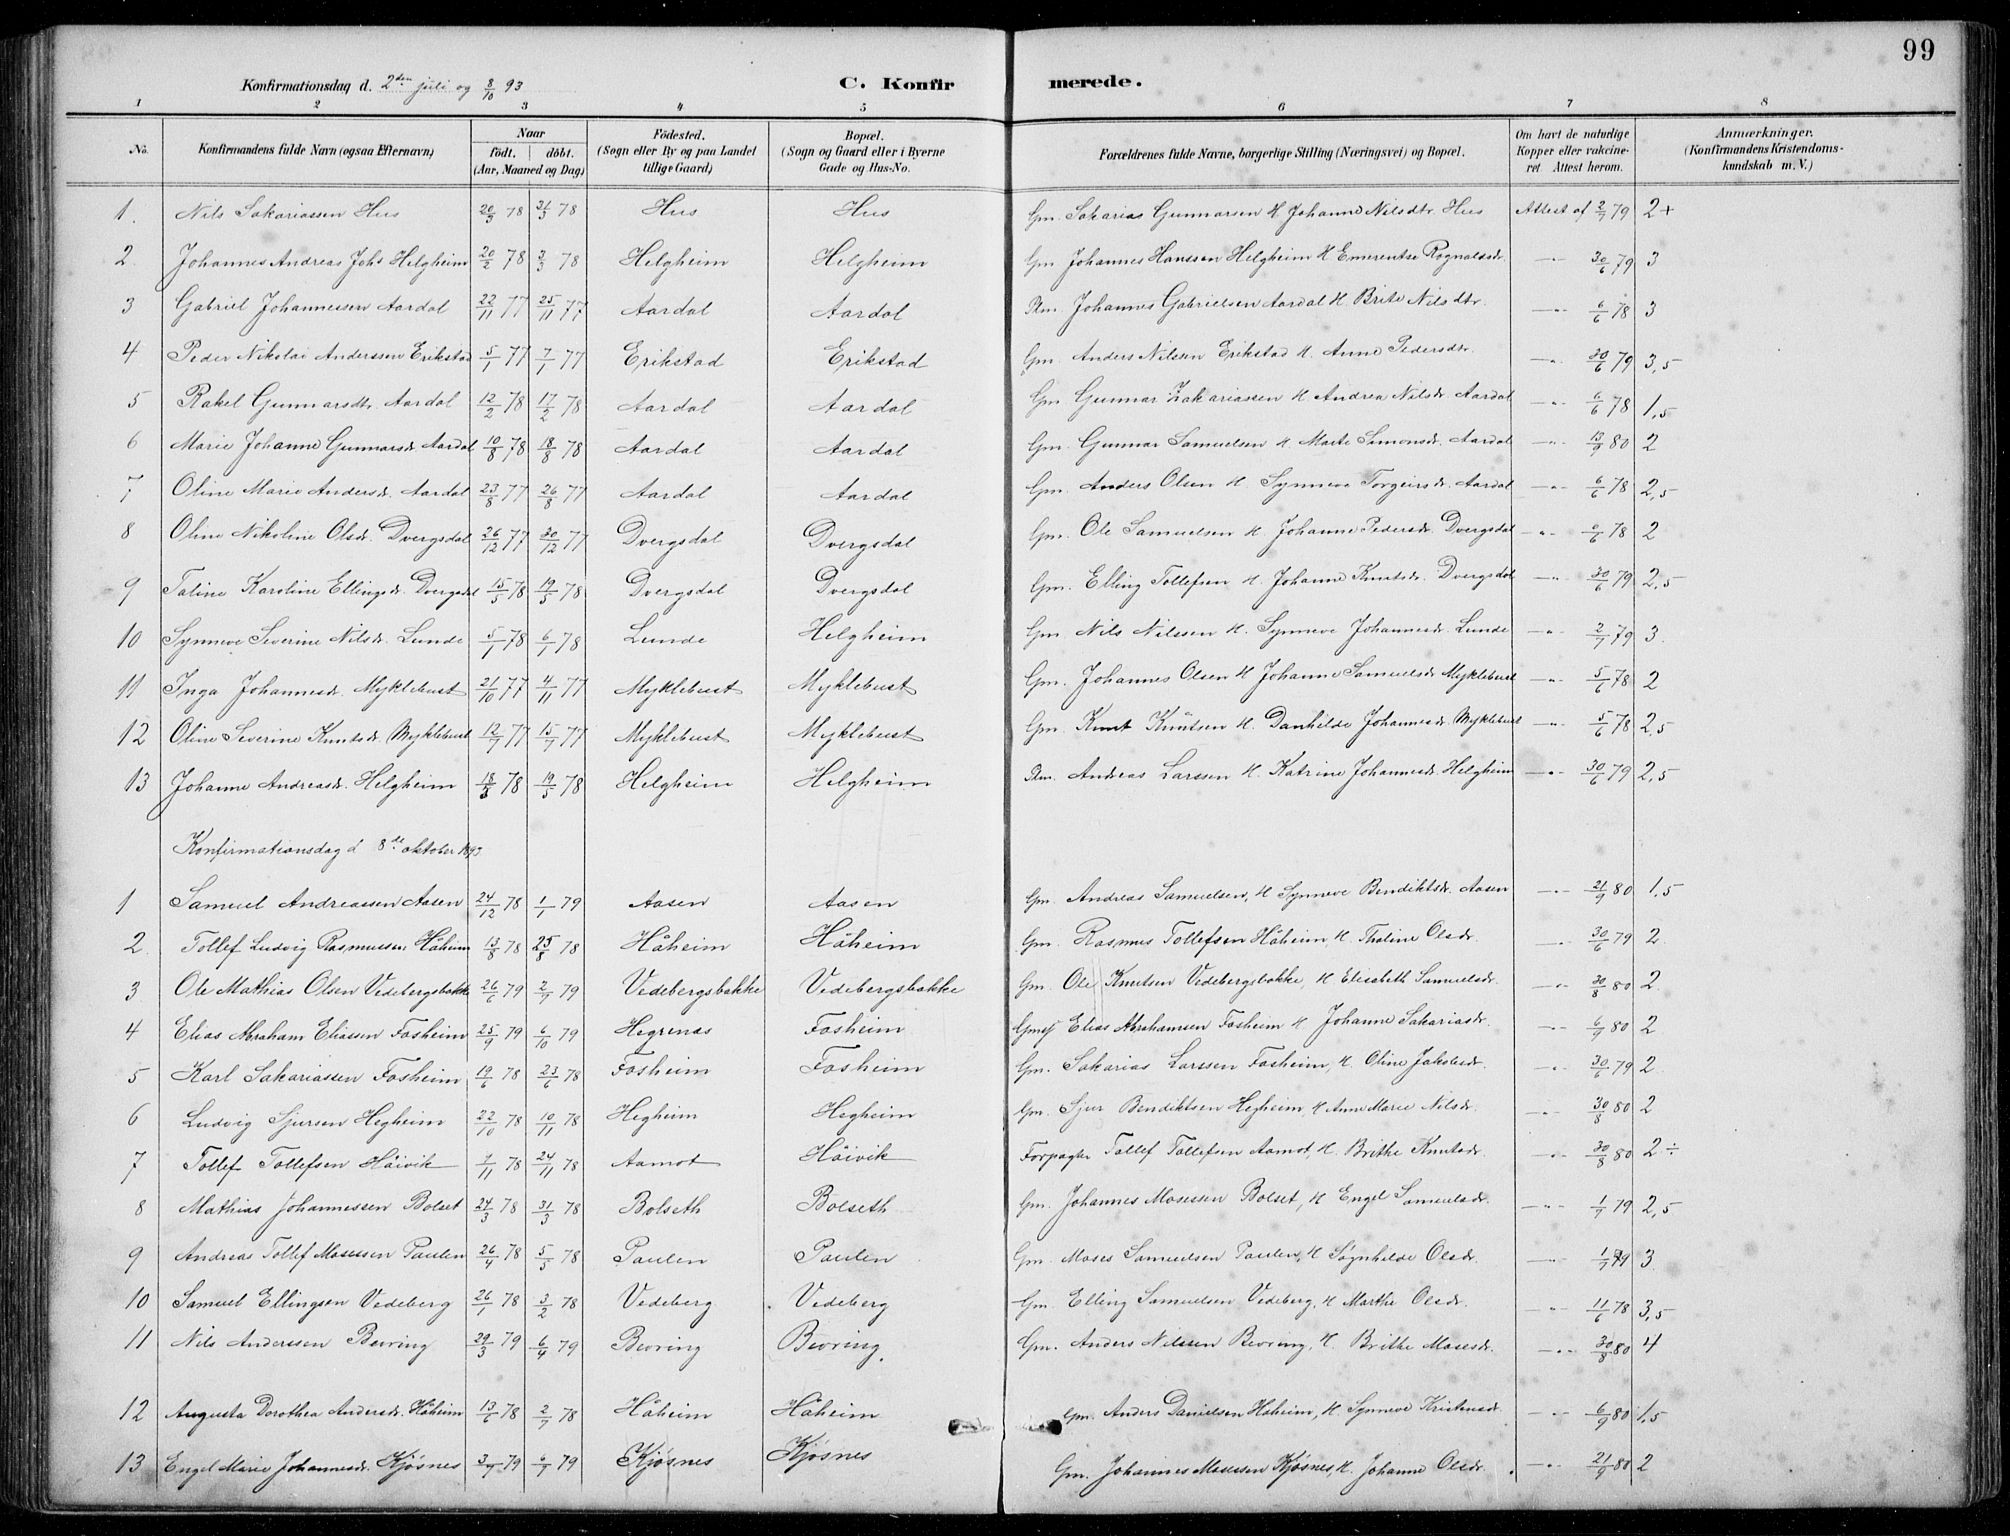 99
Konfirmationsdag d. 2den juli og 8/10 93 C. Konfirmerede.
1 2 3 4 5 6 7 8
No. Konfirmandens fulde Navn (ogsaa Efternavn) Naar født. døbt. (Aar, Maaned og Dag) Födested. (Sogn eller By og paa Landet tillige Gaard) Bopæl. (Sogn og Gaard eller i Byerne Gade og Hus-No. Forældrenes fulde Navne, borgerlige Stilling (Næringsvei) og Bopæl. Om havt de naturlige Kopper eller vakcineret Attest herom. Anmærkninger. (Konfirmandens Kristendomskundskab m. V.)
1. Nils Sakariassen Hus 20/3 78 31/3 78 Hus Hus Gm. Sakarias Gunnarsen H Johanne Nilsdtr. Hus Attest af 2/7 79 2+
2. Johannes Andreas Johs Helgheim 20/2 78 3/3 78 Helgheim Helgheim Gm Johannes Hanssen Helgheim H Emerentse Rognaldsdr. —"— 30/6 79 3
3 Gabriel Johannessen Aardal 22/11 77 25/11 77 Aardal Aardal Johannes Gabrielsen Aardal H Brite Nilsdtr. —"— 6/6 78 3
4 Peder Nikolai Anderssen Erikstad 5/1 77 7/1 77 Erikstad Erikstad Gm. Anders Nilsen Erikstad H. Anne Pedersdtr. —"— 30/6 79 3,5
5 Rakel Gunnarsdtr. Aardal 12/2 78 17/2 78 Aardal Aardal Gm Gunnar Zakariassen H Andrea Nilsdr Aardal —"— 6/6 78 1,5
6 Marie Johanne Gunnarsdr Aardal 10/8 78 18/8 78 Aardal Aardal Gm. Gunnar Samuelsen H Marte Simonsdr. Aardal —"— 13/9 80 2
7 Oline Marie Andersdr. Aardal 23/8 77 26/8 77 Aardal Aardal Gm. Anders Olsen H. Synneve Torgeirsdr. Aardal —"— 6/6 78 2,5
8 Oline Nikoline Olsdr. Dvergsdal 26/12 77 30/12 77 Dvergsdal Dvergsdal Gm. Ole Samuelsen H Johanne Pedersdr. Dvergsdal —"— 6/6 78 2
9 Taline Karoline Ellingsdr. Dvergsdal 15/5 78 19/5 78 Dvergsdal Dvergsdal Gm. Elling Tollefsen H. Johanne Knutsdr. Dvergsdal —"— 30/6 79 2,5
10 Synneve Severine Nilsdr. Lunde 5/1 78 6/1 78 Lunde Helgheim Gm. Nils Nilssen H. Synneve Johannesdr. Lunde —"— 2/7 79 3.
11 Inga Johannesdr. Myklebust 21/10 77 4/11 77 Myklebust Myklebust Gm. Johannes Olsen H Johanne Samuelsdr Myklebust —"— 5/6 78 2
12 Oline Severine Knutsdr. Myklebust 12/7 77 15/7 77 Myklebust Myklebust Gm. Knut Knutsen H. Danhilde Johannesdr. Myklebust —"— 5/6 78 2,5
13 Johanne Andreasdr. Helgheim 18/5 78 19/5 78 Helgheim Helgheim Andreas Larssen H. Katrine Johannesdr. Helgheim —"— 30/6 79 2,5
Konfirmationsdag d 8de oktober 1893
1 Samuel Andreassen Aasen 24/12 78 1/1 79 Aasen Aasen Gm. Andreas Samuelsen, H Synneve Bendiktsdr. Aasen —"— 21/9 80 1,5
2. Tollef Ludvig Rasmussen Håheim 13/8 78 25/8 78 Håheim Håheim Gm. Rasmus Tollefsen Håheim, H. Thaline Olsdr. —"— 30/6 79 2.
3 Ole Mathias Olsen Vedebergsbakke 26/6 79 2/7 79 Vedebergsbakke Vedebergsbakke Gm. Ole Knutsen Vedebergsbakke, H Elisabeth Samuelsdr. —"— 30/8 80 2.
4 Elias Abraham Eliassen Fosheim 25/9 79 6/10 79 Hegrenæs Fosheim Elias Abrahamsen Fosheim H Johanne Sakariasdr. —"— 6/9 80 2
5 Karl Sakariassen Fosheim 19/6 78 23/6 78 Fosheim Fosheim Gm. Sakarias Larssen Fosheim, H. Oline Jakobsdr. —"— 30/6 79 2
6 Ludvig Sjursen Hegheim 22/10 78 10/11 78 Hegheim Hegheim Gm. Sjur Bendiktsen Hegheim, H Anne Marie Nilsdr. —"— 30/8 80 2
7 Tollef Tollefsen Håivik 7/11 78 24/11 78 Aamot Håivik Forpagter Tollef Tollefsen Aamot, H. Brithe Knutsdr. —"— 30/8 80 2÷
8 Mathias Johannessen Bolset 24/3 78 31/3 78 Bolseth Bolseth Gm. Johannes Mosessen Bolset, H Engel Samuelsdr. —"— 1/7 79 2,5
9 Andreas Tollef Mosessen Paulen 26/4 78 5/5 78 Paulen Paulen Gm. Moses Samuelsen Paulen, H Søgnhilde Olsdr. —"— 1/7 79 3.
10 Samuel Ellingsen Vedeberg 26/1 78 3/2 78 Vedeberg Vedeberg Gm. Elling Samuelsen Vedeberg, H Marthe Olsdr. —"— 11/6 78 3,5
11 Nils Anderssen Bevring 29/3 79 6/4 79 Bevring Bevring. Gm. Anders Nilssen Bevring, H. Brithe Mosesdr. —"— 30/8 80 4
12 Augusta Dorothea Andersdr. Håheim 13/6 78 2/7 78 Håheim Håheim Gm. Anders Danielsen Håheim, H. Synneve Kristensdr. —"— 6/9 80 1,5
13 Engel Marie Johannesdr. Kjøsnes 3/7 79 6/7 79 Kjøsnes Kjøsnes Gm. Johannes Mosessen Kjøsnes, H. Johanne Olsdr. —"— 21/9 80 2